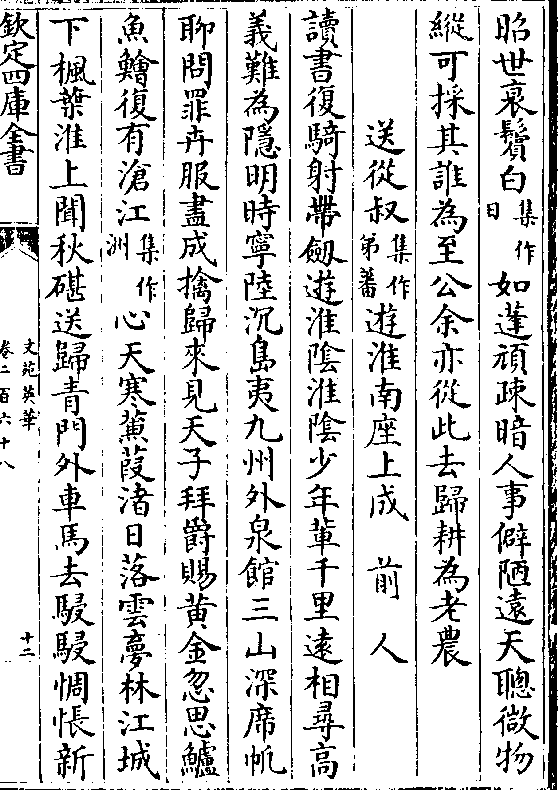 昭世衰鬢白集作日如蓬頑疎暗人事僻陋遠天聰微物
縱可採其誰為至公余亦從此去歸耕為老農
送從叔集作第蕃遊淮南座上成 前人
讀書復騎射帶劒遊淮陰淮陰少年輩千里遠相尋高
義難為隱明時寧陸沉島夷九州外泉館三山深席帆
聊問罪卉服盡成擒歸來見天子拜爵賜黃金忽思鱸
魚鱠復有滄江集作洲心天寒蒹葭渚日落雲夢林江城
下楓葉淮上聞秋砧送歸青門外車馬去駸駸惆悵新
欽定四庫全書
文苑英華
卷二百六十八
十二